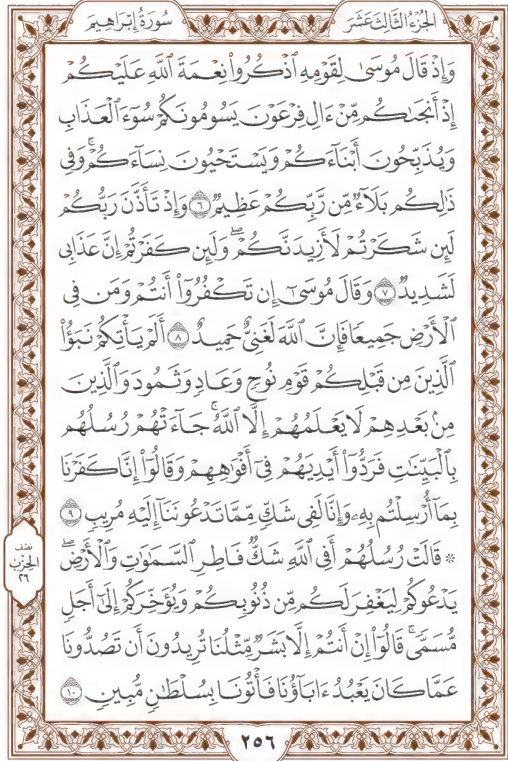 الجُزْءُ الثَّالِثَ عَشَرَ
سُورَةُ إِبْرَاهِيمَ
وَإِذْ قَالَ مُوسَىٰ لِقَوْمِهِ ٱذْكُرُوا۟ نِعْمَةَ ٱللَّهِ عَلَيْكُمْ
إِذْ أَنجَىٰكُم مِّنْ ءَالِ فِرْعَوْنَ يَسُومُونَكُمْ سُوٓءَ ٱلْعَذَابِ
وَيُذَبِّحُونَ أَبْنَآءَكُمْ وَيَسْتَحْيُونَ نِسَآءَكُمْ ۚ وَفِى
ذَٰلِكُم بَلَآءٌ مِّن رَّبِّكُمْ عَظِيمٌ ٦ وَإِذْ تَأَذَّنَ رَبُّكُمْ
لَئِن شَكَرْتُمْ لَأَزِيدَنَّكُمْ ۖ وَلَئِن كَفَرْتُمْ إِنَّ عَذَابِى
لَشَدِيدٌ ٧ وَقَالَ مُوسَىٰٓ إِن تَكْفُرُوٓا۟ أَنتُمْ وَمَن فِى
ٱلْأَرْضِ جَمِيعًا فَإِنَّ ٱللَّهَ لَغَنِىٌّ حَمِيدٌ ٨ أَلَمْ يَأْتِكُمْ نَبَؤُا۟
ٱلَّذِينَ مِن قَبْلِكُمْ قَوْمِ نُوحٍ وَعَادٍ وَثَمُودَ وَٱلَّذِينَ
مِنۢ بَعْدِهِمْ لَا يَعْلَمُهُمْ إِلَّا ٱللَّهُ ۚ جَآءَتْهُمْ رُسُلُهُم
بِٱلْبَيِّنَٰتِ فَرَدُّوٓا۟ أَيْدِيَهُمْ فِىٓ أَفْوَٰهِهِمْ وَقَالُوٓا۟ إِنَّا كَفَرْنَا
بِمَآ أُرْسِلْتُم بِهِۦ وَإِنَّا لَفِى شَكٍّ مِّمَّا تَدْعُونَنَآ إِلَيْهِ مُرِيبٍ ٩
۞ قَالَتْ رُسُلُهُمْ أَفِى ٱللَّهِ شَكٌّ فَاطِرِ ٱلسَّمَٰوَٰتِ وَٱلْأَرْضِ ۖ
يَدْعُوكُمْ لِيَغْفِرَ لَكُم مِّن ذُنُوبِكُمْ وَيُؤَخِّرَكُمْ إِلَىٰٓ أَجَلٍ
مُّسَمًّى ۚ قَالُوٓا۟ إِنْ أَنتُمْ إِلَّا بَشَرٌ مِّثْلُنَا تُرِيدُونَ أَن تَصُدُّونَا
عَمَّا كَانَ يَعْبُدُ ءَابَآؤُنَا فَأْتُونَا بِسُلْطَٰنٍ مُّبِينٍ ١٠
نصف
الحزب
٢٦
٢٥٦